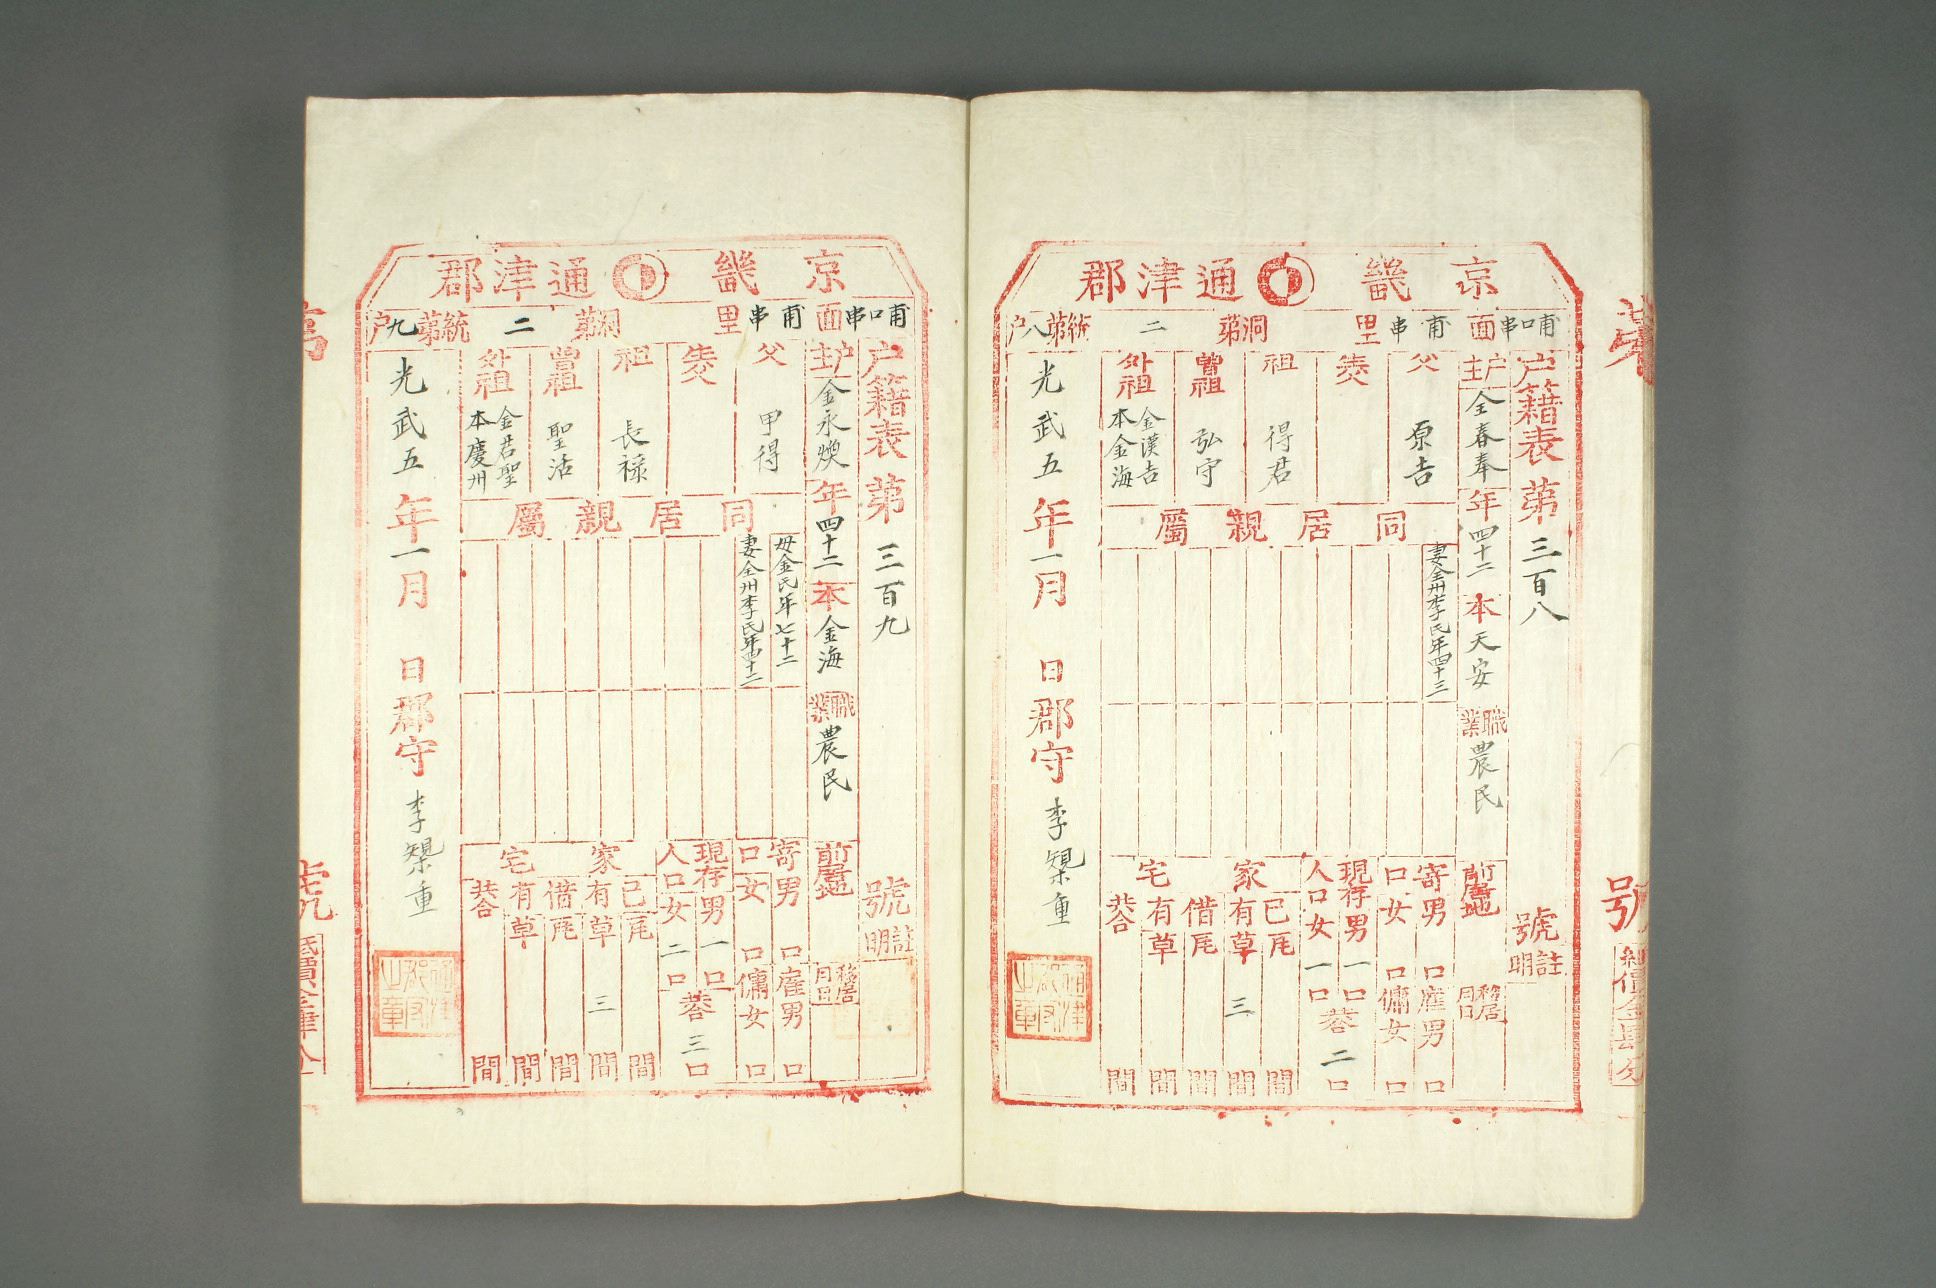 京畿 通津郡
甫口串面 甫串里 洞第二統第八户
户籍表 第三百八 號
註明
户主 全春奉 年四十二 本天安 職業 農民 前居地 移居月日
父 原吉
生父
祖 得君
曾祖 弘守
外祖 金漢吉 本金海
同居親屬
妻全州李氏年四十三
寄口 男 口 女 口
雇男 口 傭女 口
現存人口 男一口 女一口 共合二口
家宅
己有 瓦 間 草 三 間
借有 瓦 間 草 間
共合 間
光武五年一月 日 郡守 李 重
通津郡守之章
號
紙價金肆分
京畿 通津郡
甫口串面 甫串里 洞第二統第九户
户籍表 第三百九 號
註明
户主 金永煥 年四十二 本金海 職業 農民 前居地 移居月日
父 甲得
祖 長祿
曾祖 聖活
外祖 金君聖 本慶州
同居親屬
母金氏年七十二
妻全州李氏年四十二
寄口 男 口 女 口
雇男 口 傭女 口
現存人口 男一口 女二口 共合三口
家宅
己有 瓦 間 草 三 間
借有 瓦 間 草 間
共合 間
光武五年一月 日 郡守 李 重
通津郡守之章
第
號
紙價金肆分